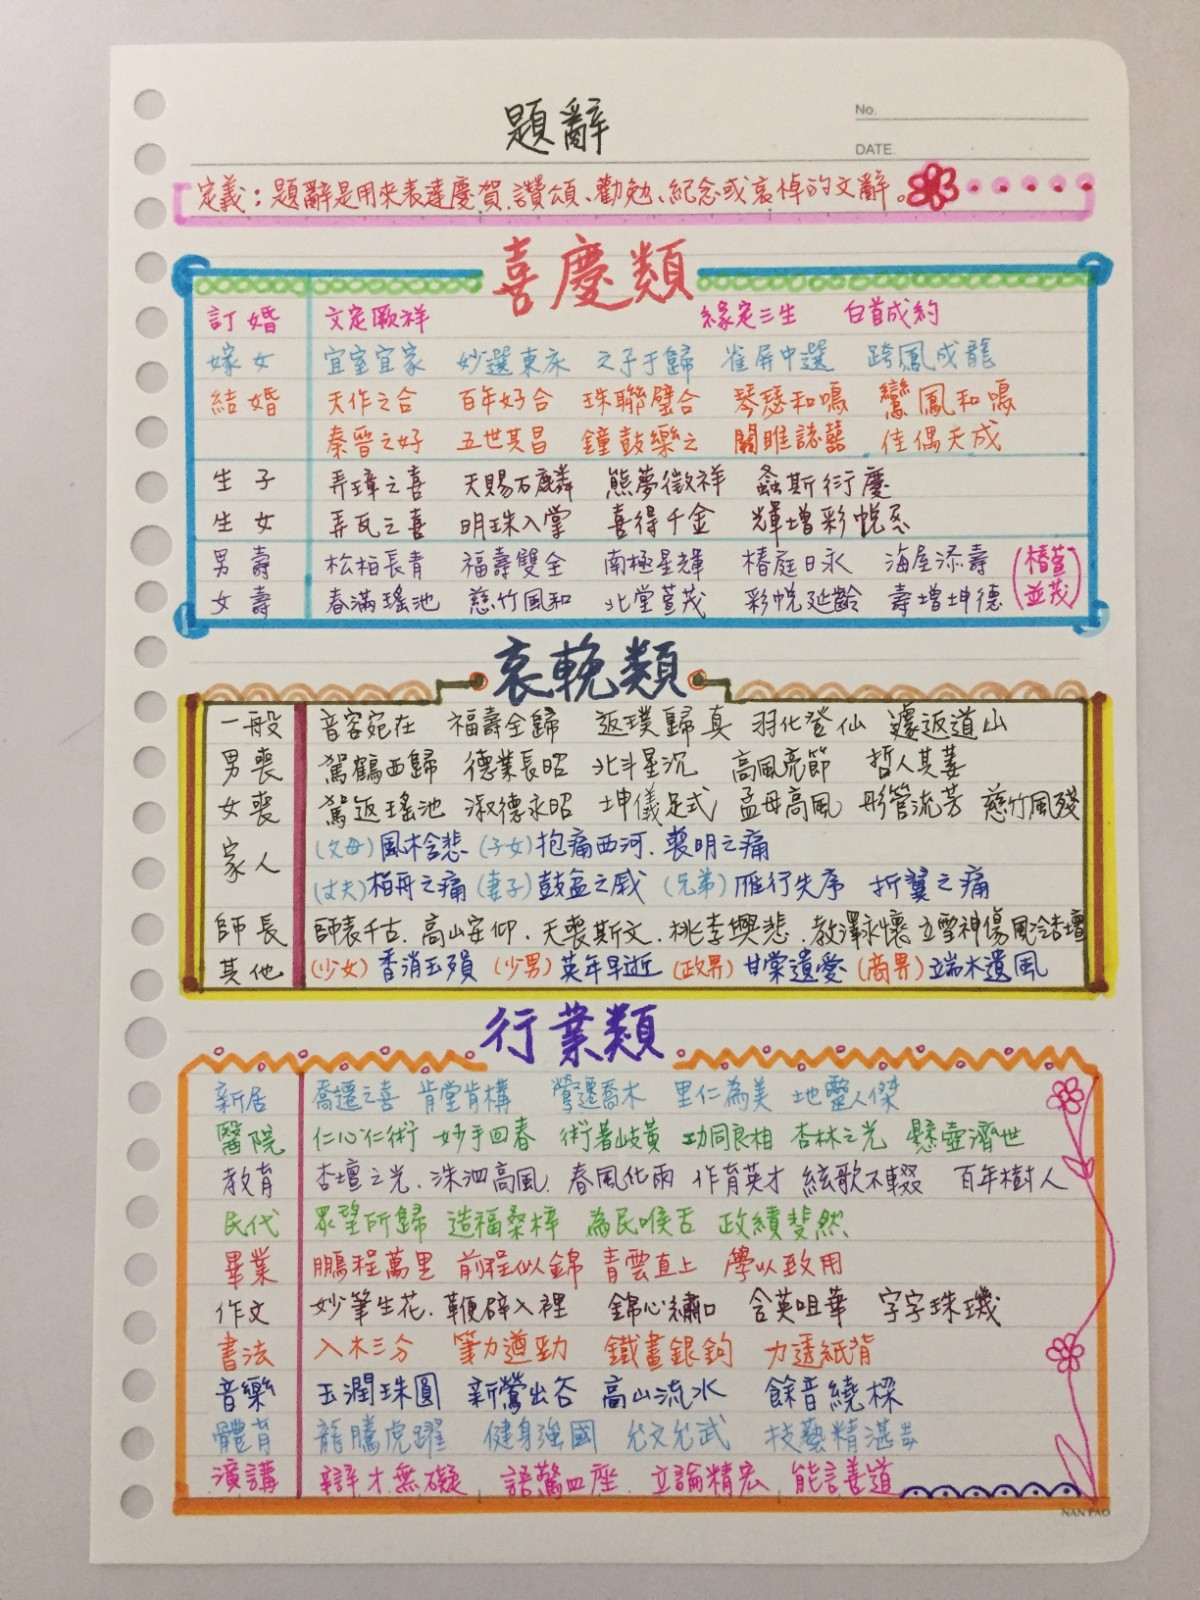 題辭
No.
DATE
定義：題辭是用來表達慶賀、讚頌、勸勉、紀念或哀悼的文辭。
喜慶類
訂婚 文定厥祥 緣定三生 白首成約
嫁女 宜室宜家 妙選東床 之子于歸 雀屏中選 跨鳳成龍
結婚 天作之合 百年好合 珠聯璧合 琴瑟和鳴 鸞鳳和鳴
秦晉之好 五世其昌 鐘鼓樂之 關雎誌囍 佳偶天成
生子 弄璋之喜 天賜石麟 熊夢徵祥 螽斯衍慶
生女 弄瓦之喜 明珠入掌 喜得千金 輝增彩帨
男壽 松柏長青 福壽雙全 南極星輝 椿庭日永 海屋添壽 (椿萱
女壽 春滿瑤池 慈竹風和 北堂萱茂 彩帨延齡 壽增坤德 並茂)
哀輓類
一般 音容宛在 福壽全歸 返璞歸真 羽化登仙 遽返道山
男喪 駕鶴西歸 德業長昭 北斗星沉 高風亮節 哲人其萎
女喪 駕返瑤池 淑德永昭 坤儀足式 孟母高風 彤管流芳 慈竹風殘
家人 (父母)風木含悲 (子女)抱痛西河、喪明之痛
(丈夫)柏舟之痛 (妻子)鼓盆之戚 (兄弟)雁行失序 折翼之痛
師長 師表千古、高山安仰、天喪斯文、桃李興悲、教澤永懷 立雪神傷 風冷杏壇
其他 (少女)香消玉殞 (少男)英年早逝 (政界)甘棠遺愛 (商界)端木遺風
行業類
新居 喬遷之喜 肯堂肯構 鶯遷喬木 里仁為美 地靈人傑
醫院 仁心仁術 妙手回春 術著岐黃 功同良相 杏林之光 懸壺濟世
教育 杏壇之光、洙泗高風、春風化雨 作育英才 絃歌不輟 百年樹人
民代 眾望所歸 造福桑梓 為民喉舌 政績斐然
畢業 鵬程萬里 前程似錦 青雲直上 學以致用
作文 妙筆生花、鞭辟入裡 錦心繡口 含英咀華 字字珠璣
書法 入木三分 筆力遒勁 鐵畫銀鉤 力透紙背
音樂 玉潤珠圓 新鶯出谷 高山流水 餘音繞樑
體育 龍騰虎躍 健身強國 允文允武 技藝精湛
演講 辯才無礙 語驚四座 立論精宏 能言善道
NAN PAO